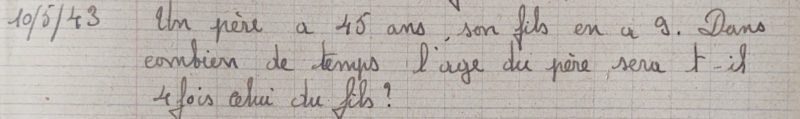 10/5/43 Un père a 45 ans, son fils en a 9. Dans
combien de temps l'age du père sera t-il
4 fois celui du fils?